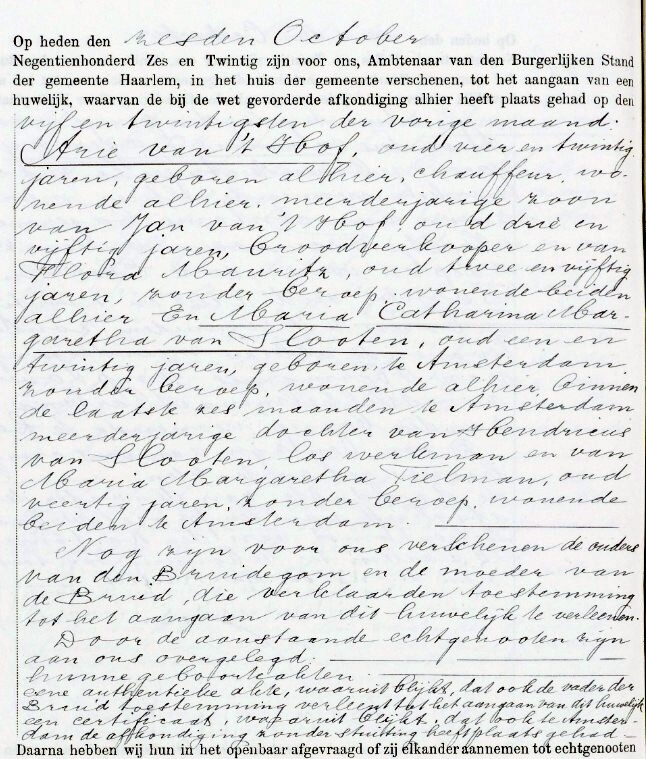 Op heden den zesden October
Negentienhonderd Zes en Twintig zijn voor ons, Ambtenaar van den Burgerlijken Stand
der gemeente Haarlem, in het huis der gemeente verschenen, tot het aangaan van een
huwelijk, waarvan de bij de wet gevorderde afkondiging alhier heeft plaats gehad op den
vijf en twintigsten der vorige maand.
Arie van 't Hof, oud vier en twintig
jaren, geboren alhier, chauffeur, wo-
nende alhier, meerderjarige zoon
van Jan van 't Hof, oud drie en
vijftig jaren, broodverkooper en van
Flora Mauritz, oud twee en vijftig
jaren, zonder beroep, wonende beiden
alhier En Maria Catharina Mar-
garetha van Slooten, oud een en
twintig jaren, geboren te Amsterdam,
zonder beroep, wonende alhier, binnen
de laatste zes maanden te Amsterdam
meerderjarige dochter van Hendricus
van Slooten, los werkman en van
Maria Margaretha Tielman, oud
veertig jaren, zonder beroep, wonende
beiden te Amsterdam.
Nog zijn voor ons verschenen de ouders
van den Bruidegom en de moeder van
de Bruid, die verklaarden toestemming
tot het aangaan van dit huwelijk te verleenen.
Door de aanstaande echtgenooten zijn
aan ons overgelegd.
hunne geboorteakten
eene authentieke akte, waaruit blijkt, dat ook de vader der
Bruid toestemming verleent tot het aangaan van dit huwelijk
een certificaat, waaruit blijkt, dat ook te Amster-
dam de afkondiging zonder stuiting heeft plaats gehad
Daarna hebben wij hun in het openbaar afgevraagd of zij elkander aannemen tot echtgenooten